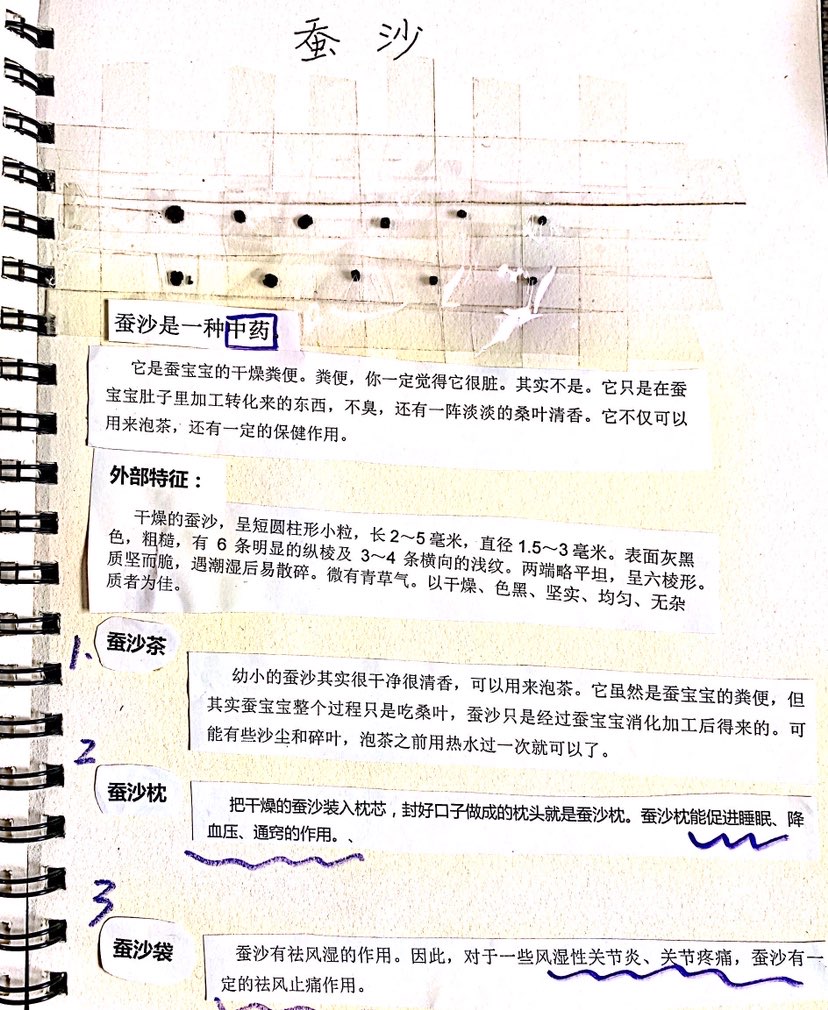 蚕沙
蚕沙是一种中药
它是蚕宝宝的干燥粪便。粪便，你一定觉得它很脏。其实不是。它只是在蚕
宝宝肚子里加工转化来的东西，不臭，还有一阵淡淡的桑叶清香。它不仅可以
用来泡茶，还有一定的保健作用。
外部特征：
干燥的蚕沙，呈短圆柱形小粒，长2～5毫米，直径1.5～3毫米。表面灰黑
色，粗糙，有 6 条明显的纵棱及 3～4 条横向的浅纹。两端略平坦，呈六棱形。
质坚而脆，遇潮湿后易散碎。微有青草气。以干燥、色黑、坚实、均匀、无杂
质者为佳。
1、蚕沙茶
幼小的蚕沙其实很干净很清香，可以用来泡茶。它虽然是蚕宝宝的粪便，但
其实蚕宝宝整个过程只是吃桑叶，蚕沙只是经过蚕宝宝消化加工后得来的。可
能有些沙尘和碎叶，泡茶之前用热水过一次就可以了。
2 蚕沙枕
把干燥的蚕沙装入枕芯，封好口子做成的枕头就是蚕沙枕。蚕沙枕能促进睡眠、降
血压、通窍的作用。、
3 蚕沙袋
蚕沙有祛风湿的作用。因此，对于一些风湿性关节炎、关节疼痛，蚕沙有一
定的祛风止痛作用。